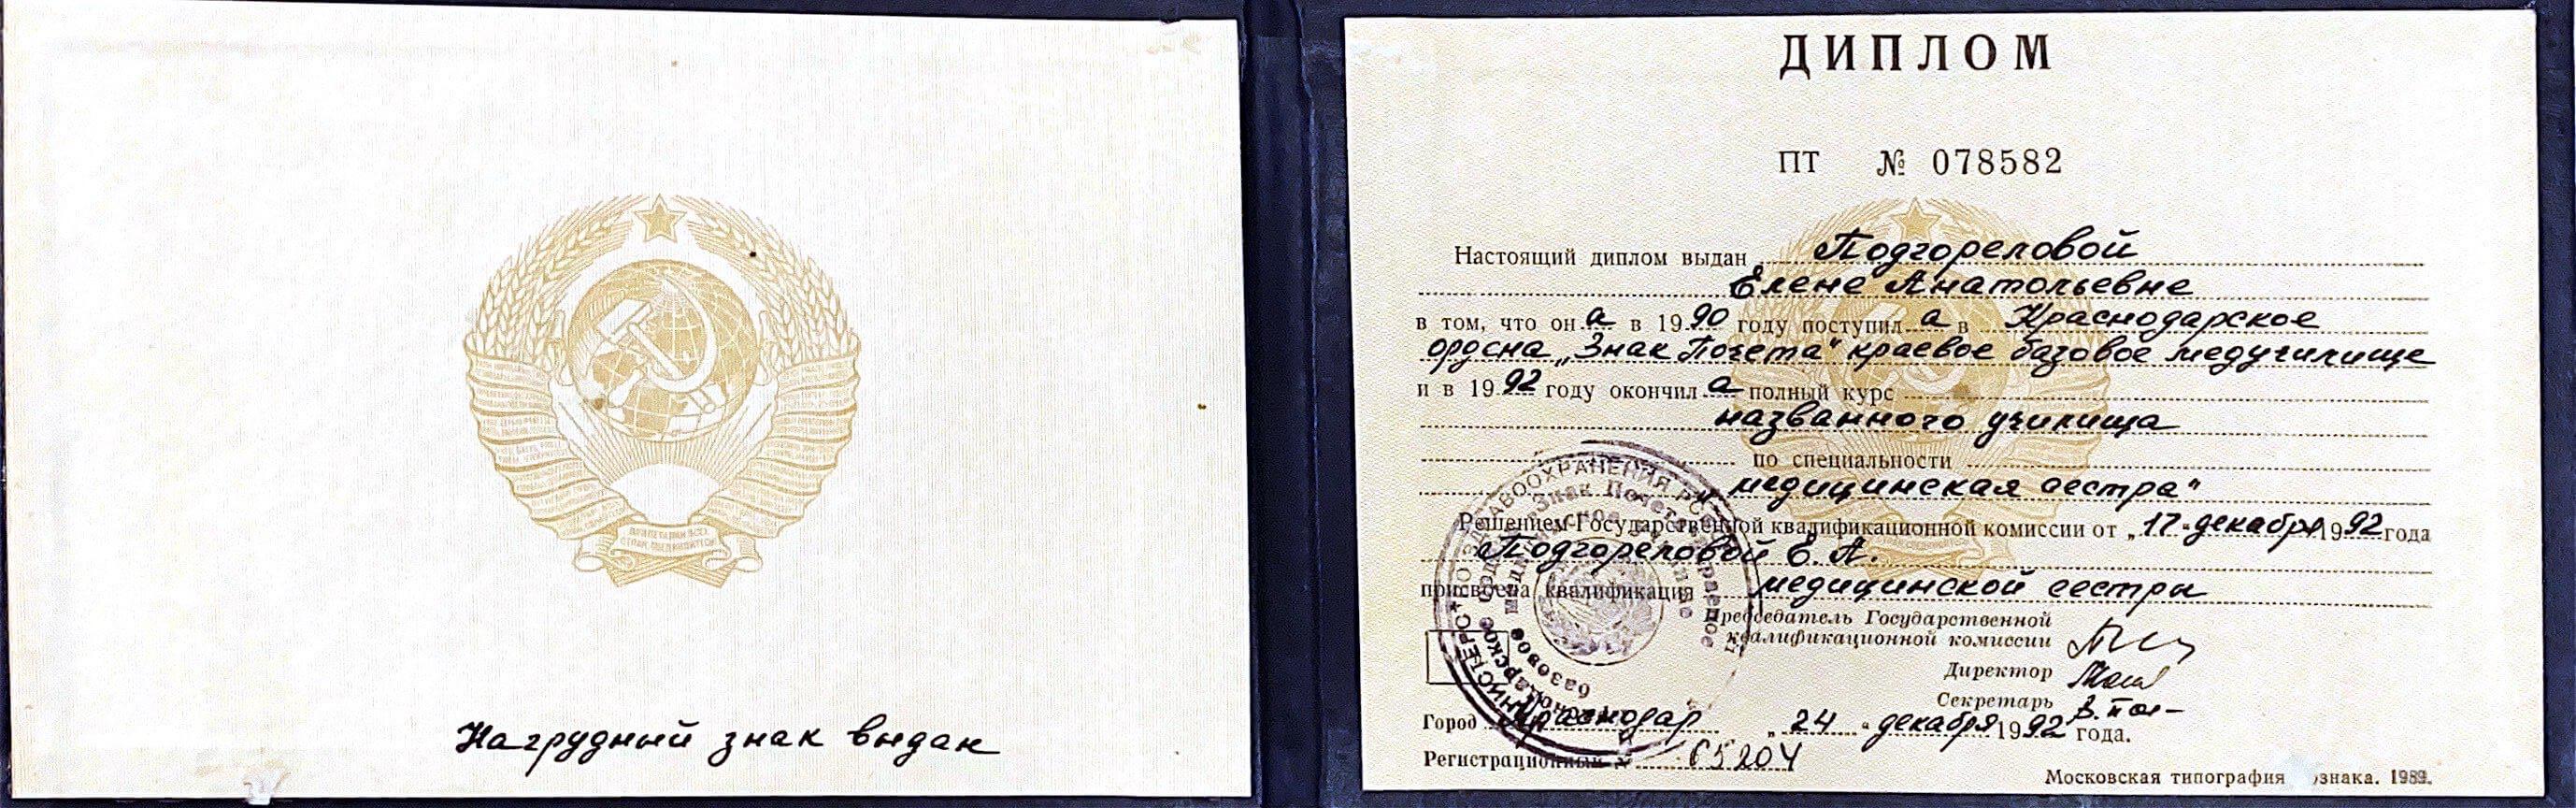 Нагрудный знак выдан
ПРОЛЕТАРИИ ВСЕХ
СТРАН, СОЕДИНЯЙТЕСЬ!
ДИПЛОМ
ПТ № 078582
Настоящий диплом выдан Подгореловой
Елене Анатольевне
в том, что он а в 1990 году поступил а в Краснодарское
ордена „Знак Почета" краевое базовое медучилище
и в 1992 году окончил а полный курс
названного училища
по специальности
„медицинская сестра"
Решением Государственной квалификационной комиссии от „17" декабря 1992 года
Подгореловой Е. А.
присвоена квалификация медицинской сестры
Председатель Государственной
квалификационной комиссии
Директор
Секретарь
Город Краснодар „24" декабря 1992 года.
Регистрационный № 65204
Московская типография ознака. 1989.